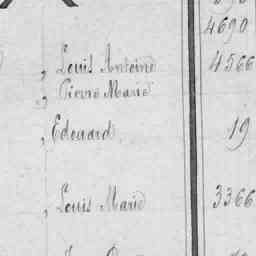 4690
, Louis Antoine 4566
, Pierre Marie
, Edouard 19
, Louis Marie 3366